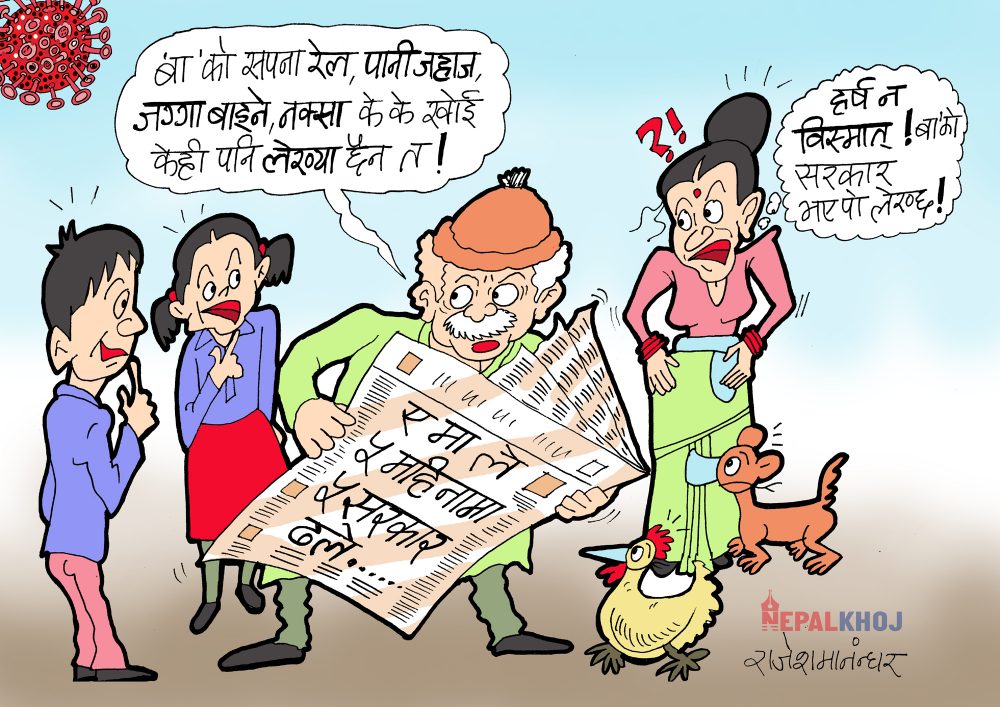 'बा' को सपना रेल, पानी जहाज,
जग्गा बाड्ने, नक्सा के के खोई
केही पनि लेख्या छैन त !
?!
हर्ष न
विस्मात् ! बा'को
सरकार
भए पो लेख्छ !
ए मा ले
५ महिनामा
सरकार
ढले.....
NEPALKHOJ
राजेशमानन्धर